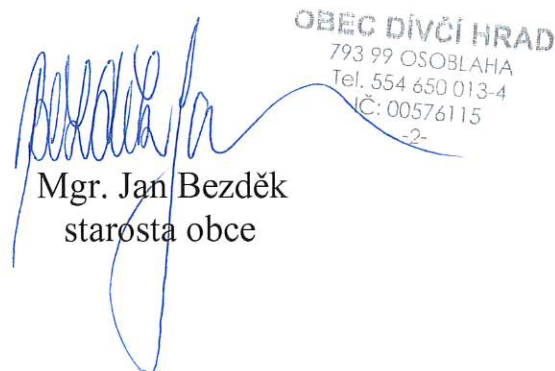 OBEC DÍVČÍ HRAD
793 99 OSOBLAHA
Tel. 554 650 013-4
IČ: 00576115
-2-
Mgr. Jan Bezděk
starosta obce